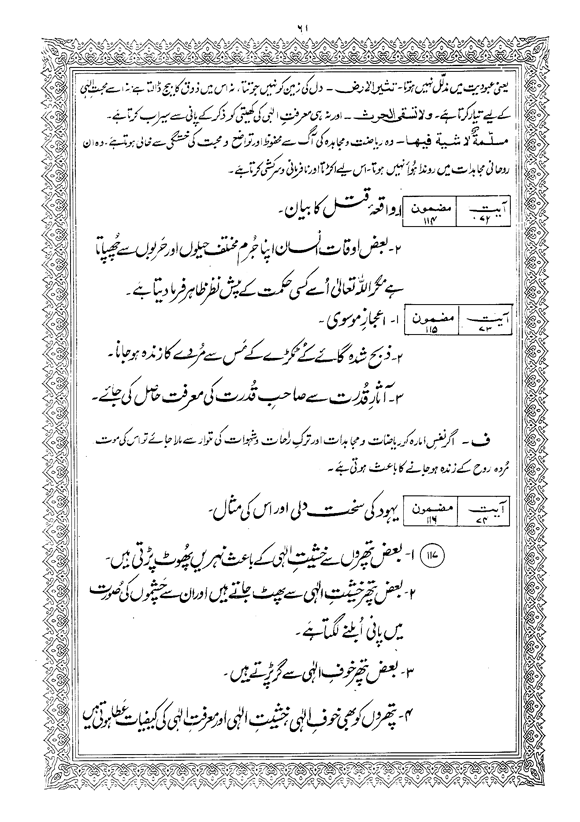 ۶۱
یعنی عبودیت میں مذلل نہیں ہوتا۔ تثیر الارض - دل کی زمین کو نہیں جوتتا، نہ اس میں ذوق کا بیج ڈالتا ہے نہ اسے محبتِ الٰہی
کے لیے تیار کرتا ہے۔ ولا تسقی الحرث - اور نہ ہی معرفتِ الٰہی کی کھیتی کو ذکر کے پانی سے سیراب کرتا ہے۔
مسلمة لا شیة فیھا - وہ ریاضت و مجاہدہ کی آگ سے محفوظ اور تواضع و محبت کی خستگی سے خالی ہوتا ہے۔ وہ ان
روحانی مجاہدات میں روندا ہوا نہیں ہوتا۔ اس لیے اکڑتا اور نافرمانی و سرکشی کرتا ہے۔
آیت ۷۲ مضمون ۱۱۴ ا۔ واقعۂ قتل کا بیان۔
۲۔ بعض اوقات انسان اپنا جُرم مختلف حیلوں اور حربوں سے چُھپاتا
ہے مگر اللہ تعالیٰ اُسے کسی حکمت کے پیشِ نظر ظاہر فرما دیتا ہے۔
آیت ۷۳ مضمون ۱۱۵ ۱۔ اعجازِ موسوی۔
۲۔ ذبح شدہ گائے کے ٹکڑے کے مَس سے مُردے کا زندہ ہو جانا۔
۳۔ آثارِ قُدرت سے صاحبِ قُدرت کی معرفت حاصل کی جائے۔
ف - اگر نفسِ امارہ کو ریاضات و مجاہدات اور ترکِ راحات و شہوات کی تلوار سے مارا جائے تو اس کی موت
مُردہ روح کے زندہ ہو جانے کا باعث ہوتی ہے۔
آیت ۷۴ مضمون ۱۱۶ یہود کی سخت دلی اور اس کی مثال۔
۱۱۷ ۱۔ بعض پتھروں سے خشیتِ الٰہی کے باعث نہریں پھوٹ پڑتی ہیں۔
۲۔ بعض پتھر خشیتِ الٰہی سے پھٹ جاتے ہیں اور ان سے چشموں کی صُورت
میں پانی اُبلنے لگتا ہے۔
۳۔ بعض پتھر خوفِ الٰہی سے گر پڑتے ہیں۔
۴۔ پتھروں کو بھی خوفِ الٰہی خشیتِ الٰہی اور معرفتِ الٰہی کی کیفیات عطا ہوتی ہیں